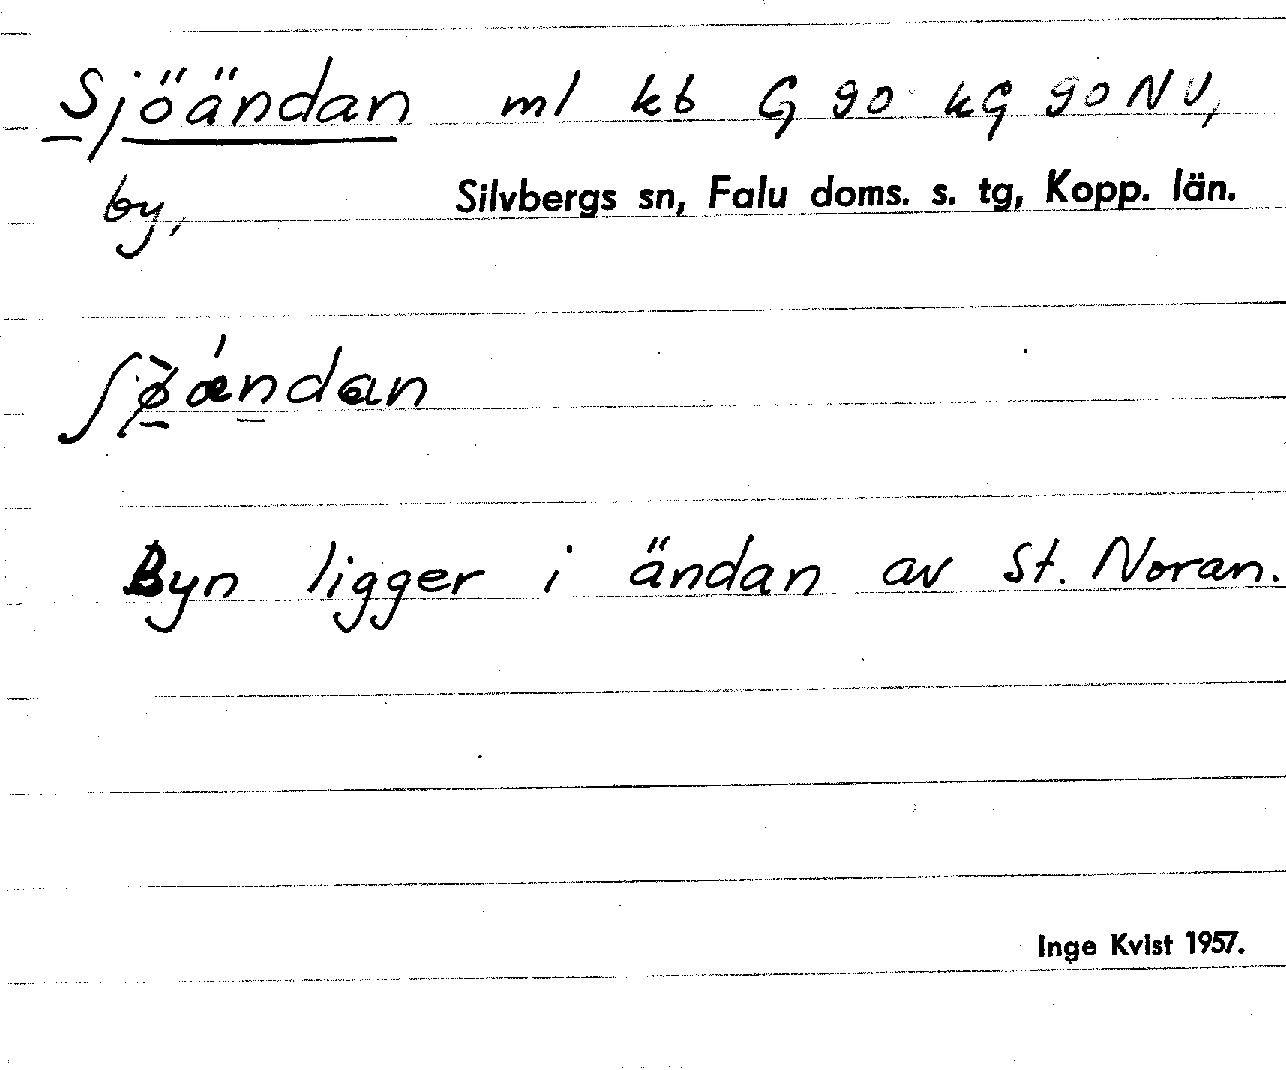 Sjöändan ml kb G 90 kG 90 NV,
by, Silvbergs sn, Falu doms. s. tg, Kopp. län.
ʃø̀ǽndan
Byn ligger i ändan av St. Noran.
Inge Kvist 1957.